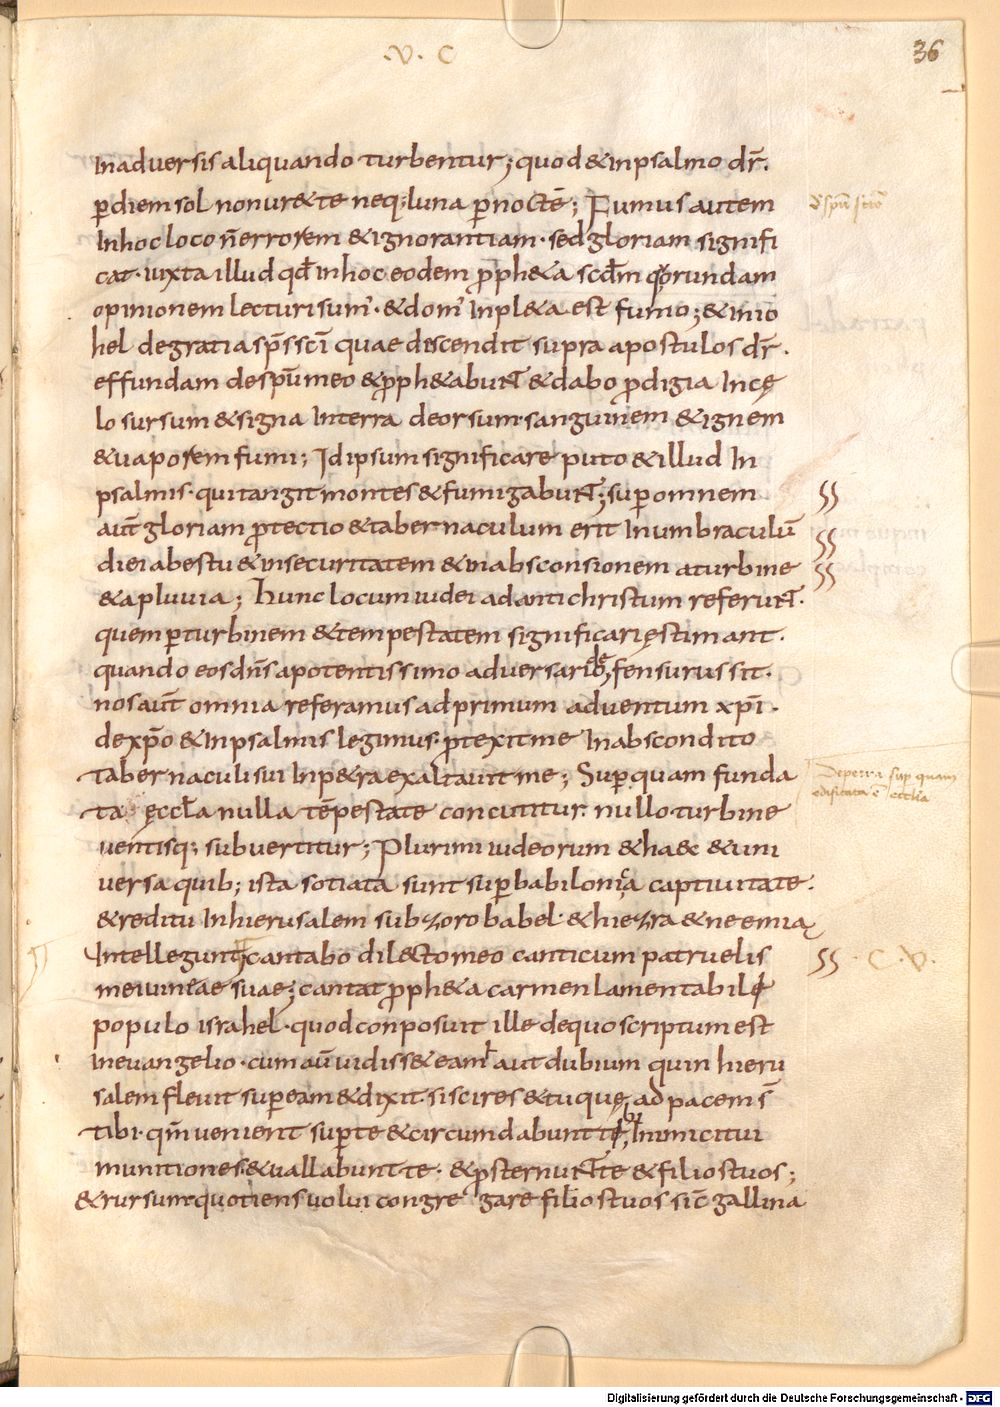 ·V· C
36
In adversis aliquando turbentur; quod & in psalmo dr̄.
p̲ diem sol non ur&te neq; luna p̲ noctē; Fumus autem
In hoc loco n̄ errorem & ignorantiam· sed gloriam signifi
cat· iuxta illud qd̄ in hoc eodem pph&a scd̄m quorundam
opinionem lecturi sum'· & dom' Inpl&a est fumo; & in io
hel de gratia sp̄s sc̄i quae descendit supra apostulos dr̄.
effundam de spū meo & pph&abunt & dabo pdigia In cę
lo sursum & signa In terra deorsum· sanguinem & ignem
& vaporem fumi; Id ipsum significare puto & illud In
psalmis· qui tangit montes & fumigabunt; sup omnem
aut̄ gloriam ptectio & tabernaculum erit In umbraculū
diei ab estu & in securitatem & in absconsionem a turbine
& a pluvia; hunc locum iudei ad antichristum referunt.
quem p̲ turbinem & tempestatem significari ęstimant.
quando eos dn̄s a potentissimo adversario defensurus sit.
nos aut̄ omnia referamus ad primum adventum xp̄i.
de xp̄o & in psalmis legimus· ptexit me In abscondito
tabernaculi sui In p&ra exaltavit me; Sup quam funda
ta ęccl̄a nulla tēpestate concutitur· nullo turbine
ventisq; subvertitur; Plurimi iudeorum & haec & uni
versa quib; ista sotiata sunt sup babilonica captivitate.
& reditu In hierusalem sub zorobabel· & hiezra & neemia
Intellegunt; cantabo dilecto meo canticum patruelis
mei vineae suae; cantat pph&a carmen lamentabile
populo israhel· quod conposuit ille de quo scriptum est
In evangelio· cum aū vidiss& eam haut dubium quin hieru
salem flevit sup eam & dixit· si scires & tu quę ad pacem s̄
tibi· qm̄ venient sup te & circumdabunt te Inimici tui
munitiones· & vallabunt te· & psternunt te & filios tuos;
& rursum quotiens volui congregare filios tuos sic̄ gallina
De petra sup quam
edificata ē ecclia
§§ · C · V ·
Digitalisierung gefördert durch die Deutsche Forschungsgemeinschaft - DFG